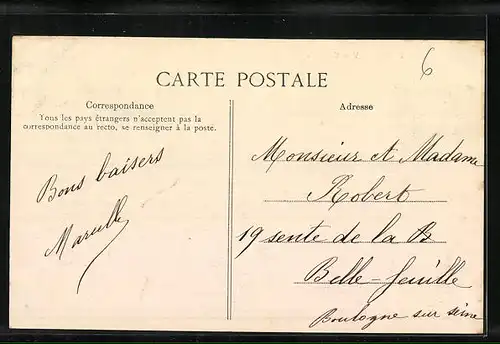 6
CARTE POSTALE
Correspondance
Tous les pays étrangers n'acceptent pas la
correspondance au recto, se renseigner à la poste.
Bons baisers
Adresse
Monsieur et Madame
Robert
19 sente de la B
Belle-feuille
Boulogne sur seine